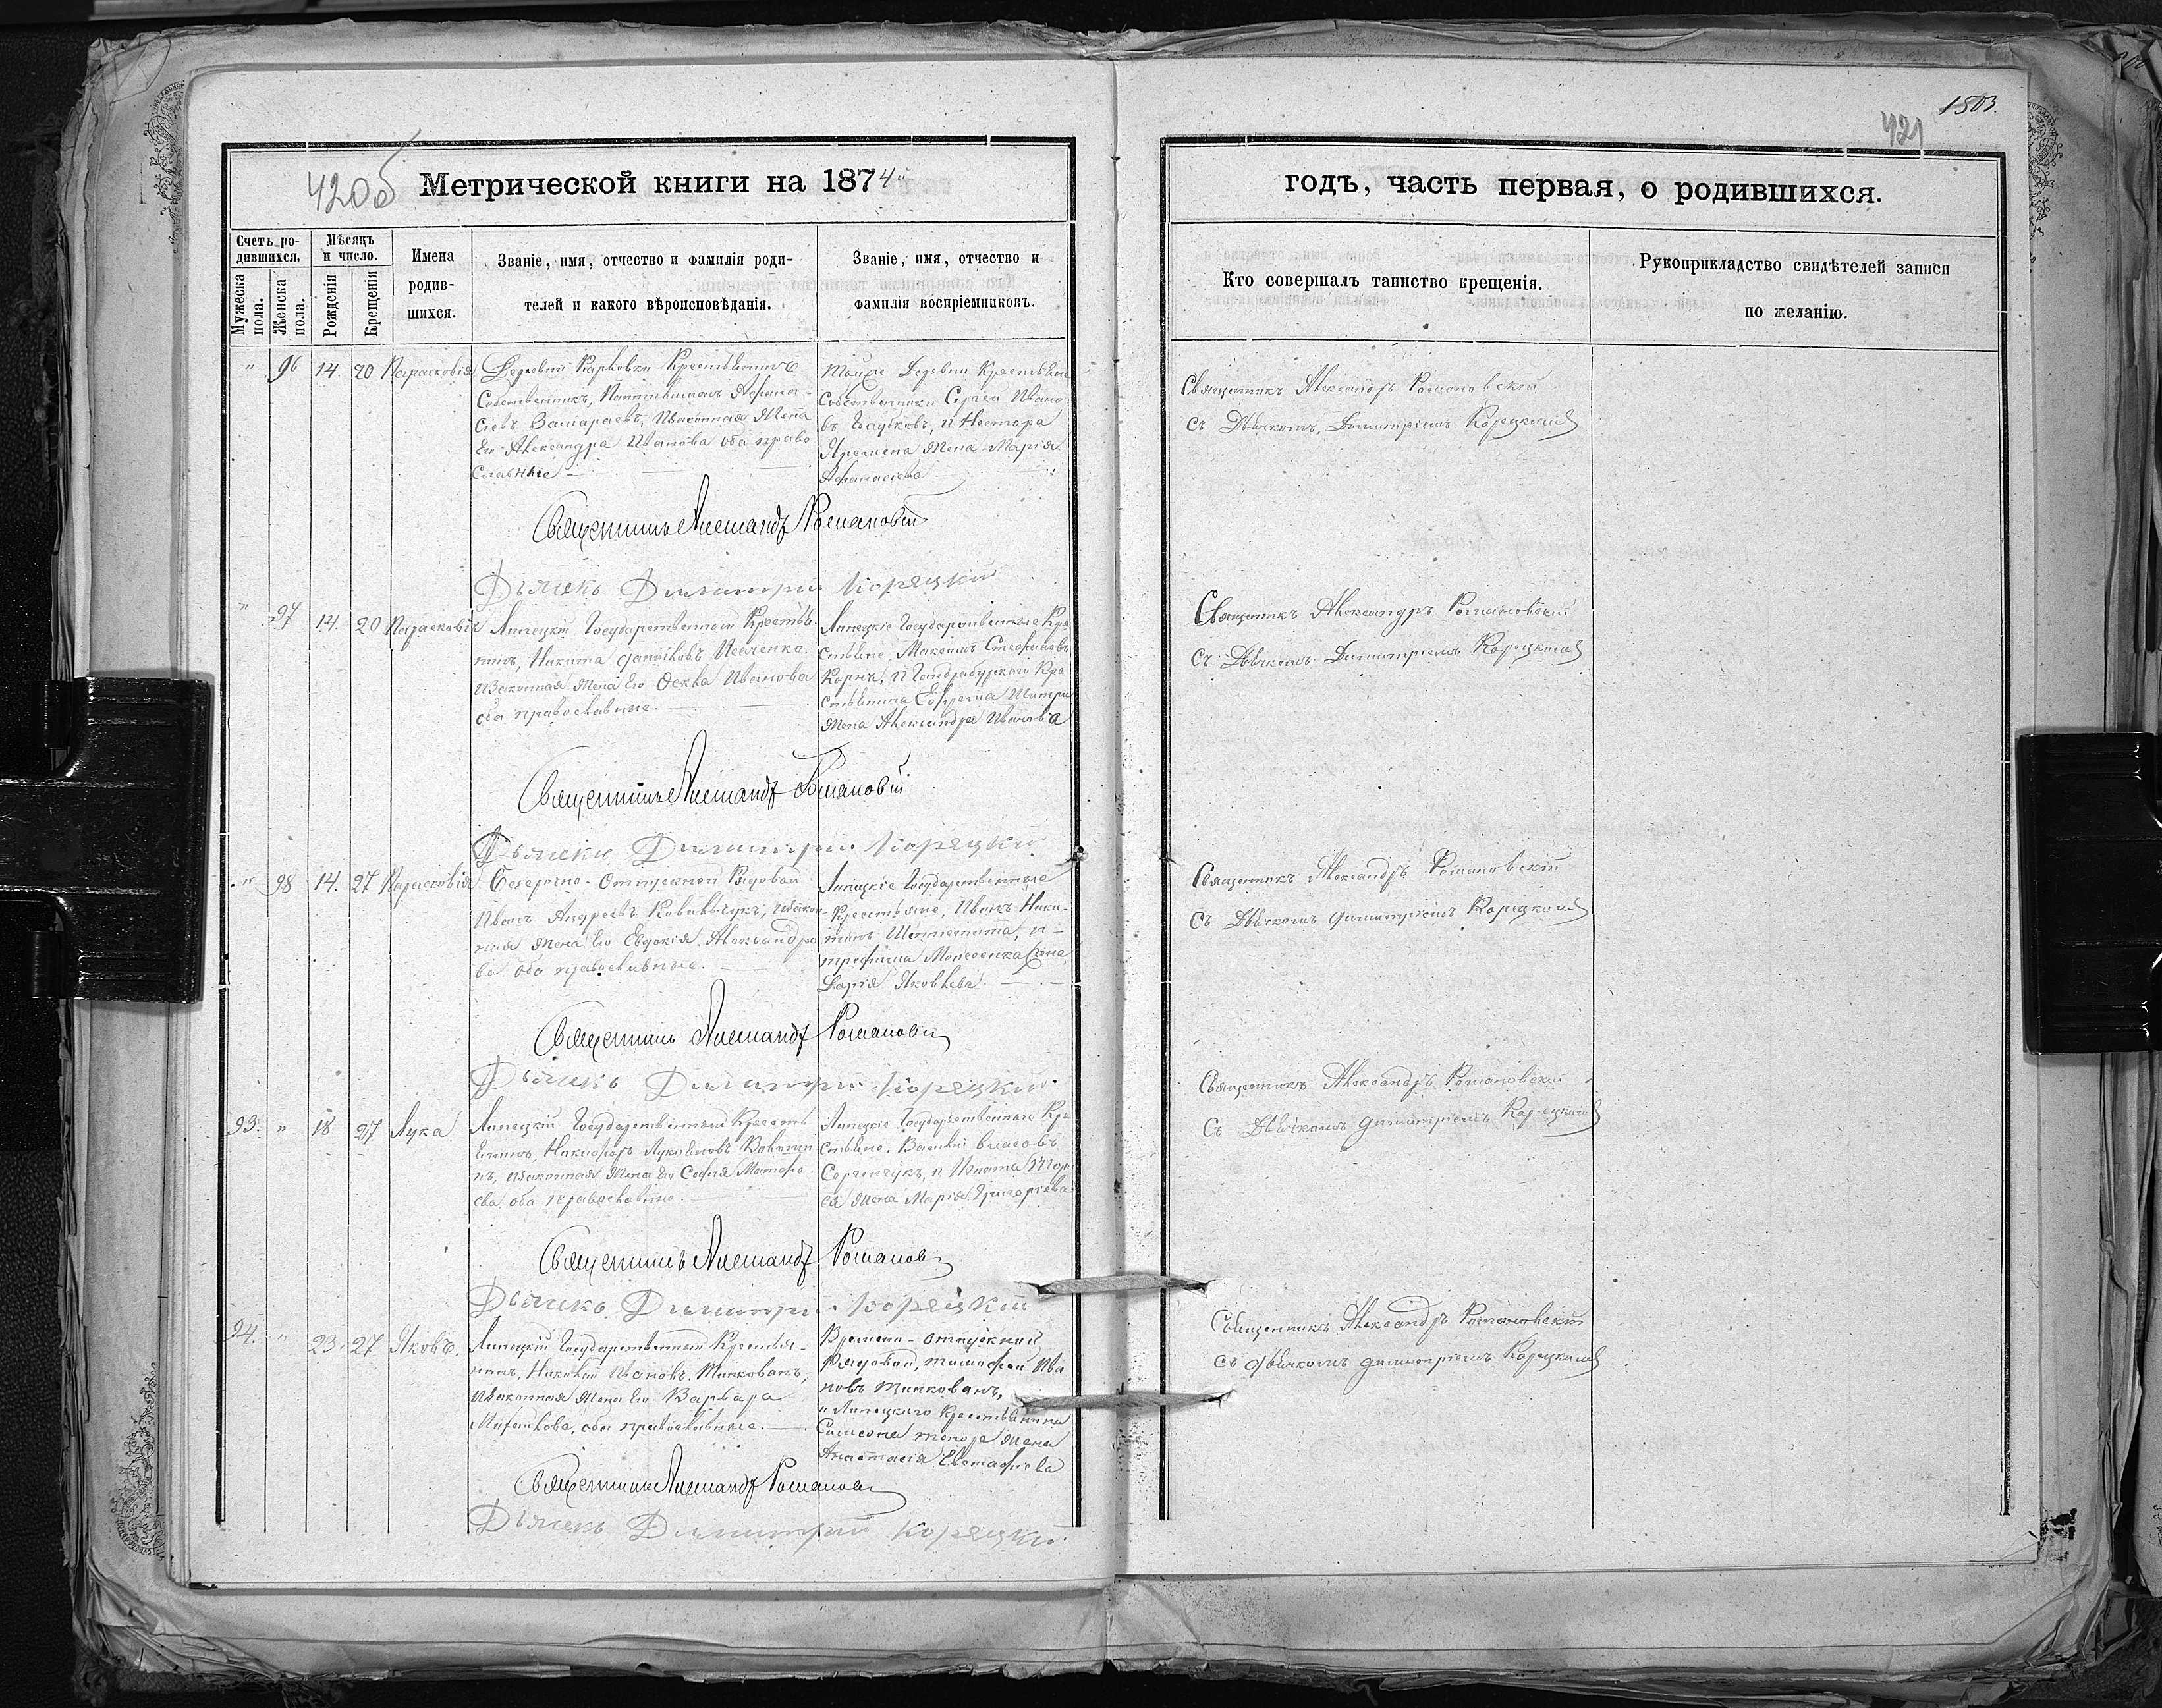 1503.
421
420об
Метрической книги на 1874
годъ, часть первая, о родившихся.
Счетъ ро-
дившихся.
Мужеска
пола.
Женска
пола.
Мѣсяцъ
и число.
Рожденія
Крещенія
Имена
родив-
шихся.
Званіе, имя, отчество и фамилія роди-
телей и какого вѣроисповѣданія.
Званіе, имя, отчество и
фамилія воспріемниковъ.
Кто совершалъ таинство крещенія.
Рукоприкладство свидѣтелей записи
по желанію.
" 96 14. 20 Парасковія
Деревни Карповки Крестьянинъ
Собственникъ, Афана-
сіевъ Замараевъ, Изаконная Жена
Его Александра Иванова оба право
славные
Тойже Деревни Крестьяне
Собственники Сергѣй Ивано
въ и Нестора
Яремена Жена Марія
Афанасіева
Священникъ Александръ Романовскій
Дьячекъ Димитрій Корецкій
Священникъ Александръ Романовскій
съ Дьячкомъ Димитріемъ Корецкимъ
" 97 14. 20 Парасковія
Липецкій Государственный Крестья-
нинъ, Никита Исаченко
Изаконная Жена Его Ѳекла Иванова
оба православные.
Липецкіе Государственные Кре
стьяне, Максимъ Стефановъ
Корня, и Гандрабурскаго Кре
стьянина Ефрема
Жена Александра Иванова
Священникъ Александръ Романовскій
Дьячекъ Димитрій Корецкій
Священникъ Александръ Романовскій
съ Дьячкомъ Димитріемъ Корецкимъ
" 98 14. 27 Парасковія
Безсрочно-Отпускной Рядовой
Иванъ Андреевъ Ковальчукъ, Изакон-
ная Жена Его Евдокія Александро
ва оба православные.
Липецкіе Государственные
Крестьяне, Иванъ Ники-
тинъ и
трофима Моисеенка Жена
Дарія Яковлева.
Священникъ Александръ Романовскій
Дьячекъ Димитрій Корецкій
Священникъ Александръ Романовскій
Съ Дьячкомъ Димитріемъ Корецкимъ
93. " 18 27 Лука
Липецкій Государственный Кресть
янинъ, Никифоръ Лукьяновъ
нъ, Изаконная Жена Его Софія Матфе
ева, оба православные.
Липецкіе Государственные Кре
стьяне. Василій Власовъ
Сергѣйчукъ, и Игната
Жена Марія Григоріева
Священникъ Александръ Романовскій
Дьячекъ Димитрій Корецкій
Священникъ Александръ Романовскій
Съ Дьячкомъ Димитріемъ Корецкимъ
94. " 23. 27 Яковъ.
Липецкій Государственный Крестья-
нинъ, Николай Ивановъ Танкованъ,
Изаконная Жена Его Варвара
оба православные.
Временно-отпускной
Рядовой, тимофей Ива
новъ Танкованъ,
и Липецкаго Крестьянина
Симеона Жена
Анастасія Евстафіева
Священникъ Александръ Романовскій
Дьячекъ Димитрій Корецкій
Священникъ Александръ Романовскій
съ дьячкомъ димитріемъ Корецкимъ